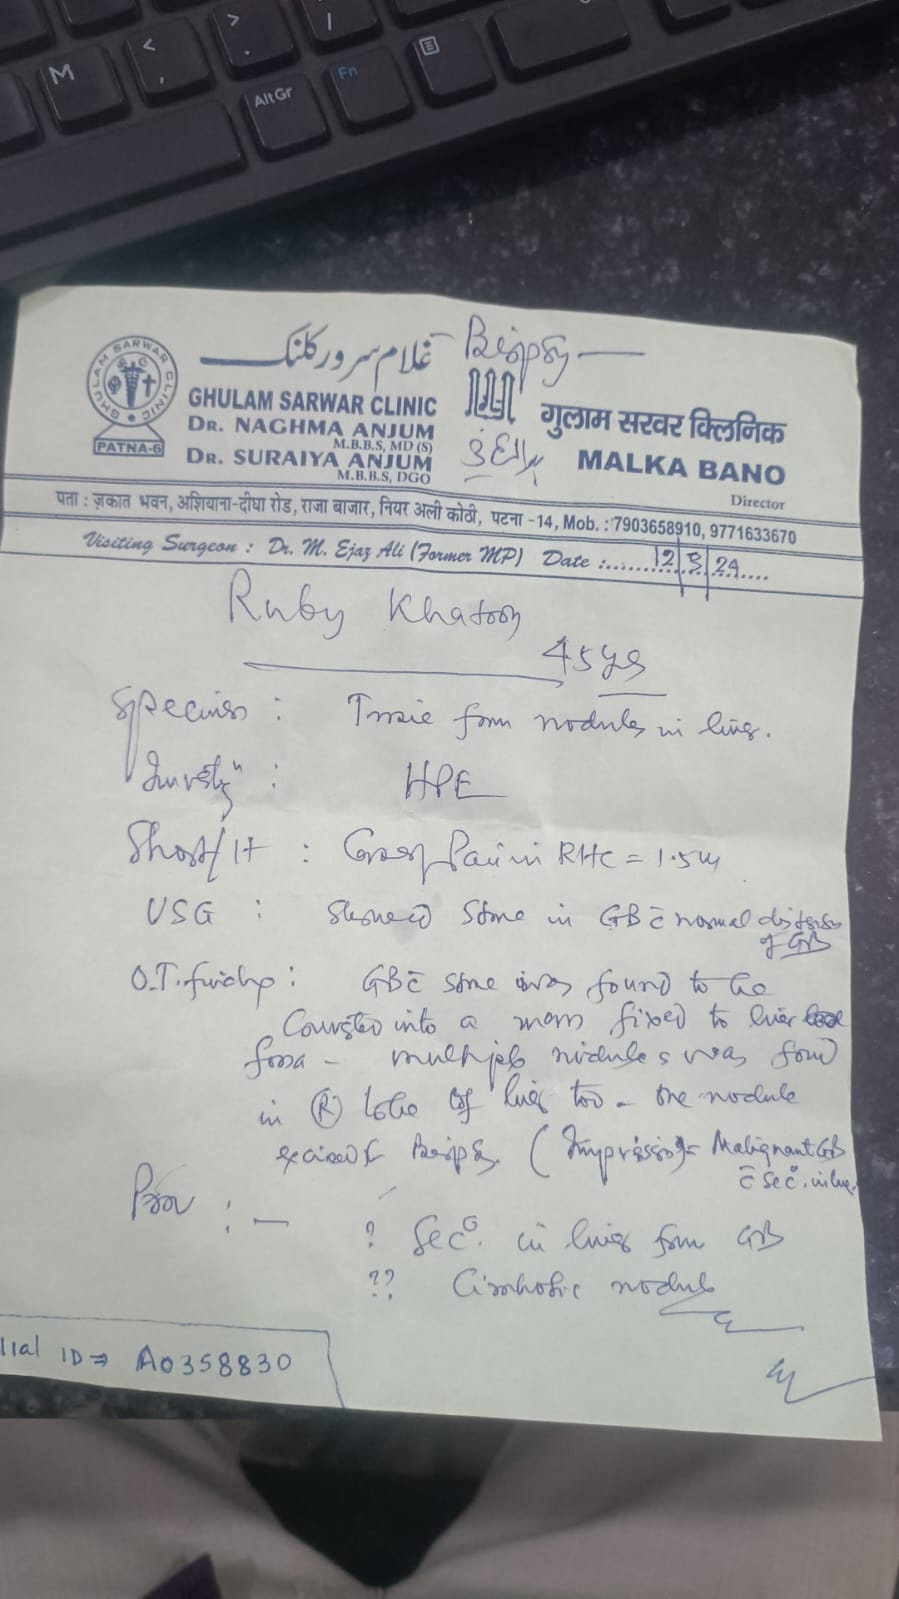 M
<
,
>
.
/
AltGr
Fn
غلام سرور کلنک
Beiopsy —
GHULAM SARWAR CLINIC
PATNA-6
GHULAM SARWAR CLINIC
DR. NAGHMA ANJUM
M.B.B.S, MD (S)
DR. SURAIYA ANJUM
M.B.B.S, DGO
गुलाम सरवर क्लिनिक
MALKA BANO
Director
पता : ज़कात भवन, अशियाना-दीघा रोड, राजा बाजार, नियर अली कोठी, पटना -14, Mob. : 7903658910, 9771633670
Visiting Surgeon : Dr. M. Ejaz Ali (Former MP) Date :...... 12/3/24....
Ruby Khatoon
45 yrs
Specimen : Tissue from nodules in liver.
Investgn : HPE
Short/H : Pain in RHC = 1.5
USG : Showed Stone in GB c̄ normal
of GB
O.T. findings : GB c̄ stone was found to be
Converted into a mass fixed to liver
fossa - multiple nodules was found
in (R) lobe of liver too - one nodule
excised for Beiopsy. (Impression = Malignant GB
c̄ Sec°. in liver
Prov : —
? Sec°. in liver from GB
?? Cirrhotic nodule
ID ⇒ A0358830